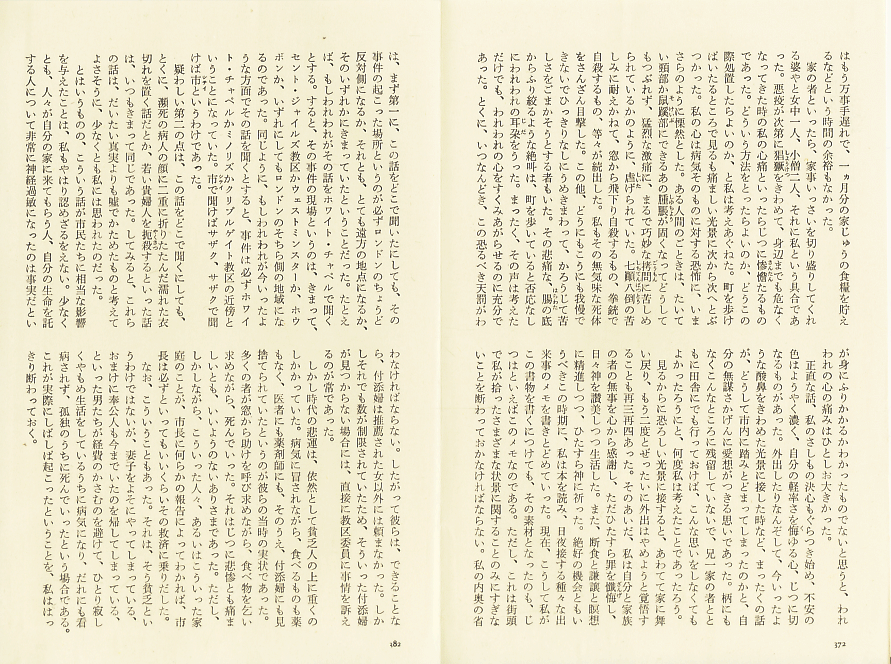 はもう万事手遅れで、一ヵ月分の家じゅうの食糧を貯え
るなどという時間の余裕もなかった。
家の者といったら、家事いっさいを切り盛りしてくれ
る婆やと女中一人、小僧二人、それに私という具合であ
った。悪疫が次第に猖獗をきわめて、身辺までも危なく
なってきた時の私の心痛といったらじつに惨憺たるもの
であった。どういう方法をとったらよいのか、どうこの
際処置したらよいのか、と私は考えあぐねた。町を歩け
ばいたるところで見るも痛ましい光景に次から次へとぶ
つかった。私の心は病気そのものに対する恐怖に、いま
さらのように慄然とした。ある人間のごときは、たいて
い頸部か鼠蹊部にできるあの腫脹が固くなってどうして
もつぶれず、猛烈な激痛に、まるで巧妙な拷問に苦しめ
られているかのように、虐げられていた。七顛八倒の苦
しみに耐えかねて、窓から飛下り自殺するもの、拳銃で
自殺するもの、等々が続出した。私もその無気味な死体
をさんざん目撃した。この他、どうにもこうにも我慢で
きないでひっきりなしにうめきまわって、かろうじて苦
しさをごまかそうとする患者もいた。その悲痛な、腸の底
からふり絞るような絶叫は、町を歩いていると否応なし
にわれわれの耳朶をうった。まったく、その声は考えた
だけでも、われわれの心をすくみあがらせるのに充分で
あった。とくに、いつなんどき、この恐るべき天罰がわ
が身にふりかかるかわかったものでないと思うと、われ
われの心の痛みはひとしお大きかった。
正直な話、私のさしもの決心もぐらつき始め、不安の
色はようやく濃く、自分の軽率さを悔ゆる心、じつに切
なるものがあった。外出したりなんぞして、今いったよ
うな酸鼻をきわめた光景に接した時など、まったくの話
が、どうして市内に踏みとどまってしまったのかと、自
分の無謀さかげんに愛想がつきる思いであった。柄にも
なくこんなところに残留していないで、兄一家の者とと
もに田舎にでも行っておけば、こんな思いをしなくても
よかったろうにと、何度私は考えたことであったろう。
見るからに恐ろしい光景に接すると、あわてて家に舞
い戻り、もう二度とぜったいに外出はやめようと覚悟す
ることも再三再四あった。そのあいだ、私は自分と家族
の者の無事を心から感謝し、ただひたすら罪を懺悔し、
日々神を讃美しつつ生活した。また、断食と謙譲と瞑想
に精進しつつ、ひたすら神に祈った。絶好の機会ともい
うべきこの時期に、私は本を読み、日夜接する種々な出
来事のメモを書きとどめていった。現在、こうして私が
この書物を書くにつけても、その素材となったのも、じ
つはといえばこのメモなのである。ただし、これは街頭
で私が拾ったさまざまな状景に関することのみにすぎな
いことを断わっておかなければならない。私の内奥の省
372
は、まず第一に、この話をどこで聞いたにしても、その
事件の起こった場所というのが必ずロンドンのちょうど
反対側になるか、それとも、とても遠方の地点になるか、
そのいずれかにきまっていたということだった。たとえ
ば、もしわれわれがその話をホワイト・チャペルで聞く
とする。すると、その事件の現場というのは、きまって、
セント・ジャイルズ教区かウェストミンスターか、ホウ
ボンか、いずれにしてもロンドンのそちら側の地域にな
るのであった。同じように、もしわれわれが今いったよ
うな方面でその話を聞くとすると、事件は必ずホワイ
ト・チャペルかミノリズかクリプルゲイト教区の近傍と
いうことになっていた。市で聞けばサザク、サザクで聞
けば市というわけであった。
疑わしい第二の点は、この話をどこで聞くにしても、
とくに、瀕死の病人の顔に二重に折りたたんだ濡れた衣
切れを置く話だとか、若い貴婦人を扼殺するといった話
は、いつもきまって同じであった。してみると、これら
の話は、だいたい真実よりも嘘でかためたものと考えて
よさそうに、少なくとも私には思われたのだった。
とはいうものの、こういう話が市民たちに相当な影響
を与えたことは、私もやはり認めざるをえない。少なく
とも、人々が自分の家に来てもらう人、自分の生命を託
する人について非常に神経過敏になったのは事実だとい
わなければならない。したがって彼らは、できることな
ら、付添婦は推薦された女以外には頼まなかった。しか
しそれでも数が制限されていたため、そういった付添婦
が見つからない場合には、直接に教区委員に事情を訴え
るのが常であった。
しかし時代の悲運は、依然として貧乏人の上に重くの
しかかっていた。病気に冒されながら、食べるものも薬
もなく、医者にも薬剤師にも、そのうえ、付添婦にも見
捨てられていたというのが彼らの当時の実状であった。
多くの者が窓から助けを呼び求めながら、食べ物を乞い
求めながら、死んでいった。それはじつに悲惨とも痛ま
しいとも、いいようのないありさまであった。ただし、
しかしながら、こういった人々、あるいはこういった家
庭のことが、市長に何らかの報告によってわかれば、市
長は必ずといってもいいくらいその救済に乗りだした。
なお、こういうこともあった。それは、そう貧乏とい
うわけではないが、妻子をよそにやってしまっている、
おまけに奉公人も今までいたのを帰してしまっている、
といった男たちが経費のかさむのを避けて、ひとり寂し
くやもめ生活をしているうちに病気になり、だれにも看
病されず、孤独のうちに死んでいったという場合である。
これが実際にしばしば起こったということを、私ははっ
きり断わっておく。
382